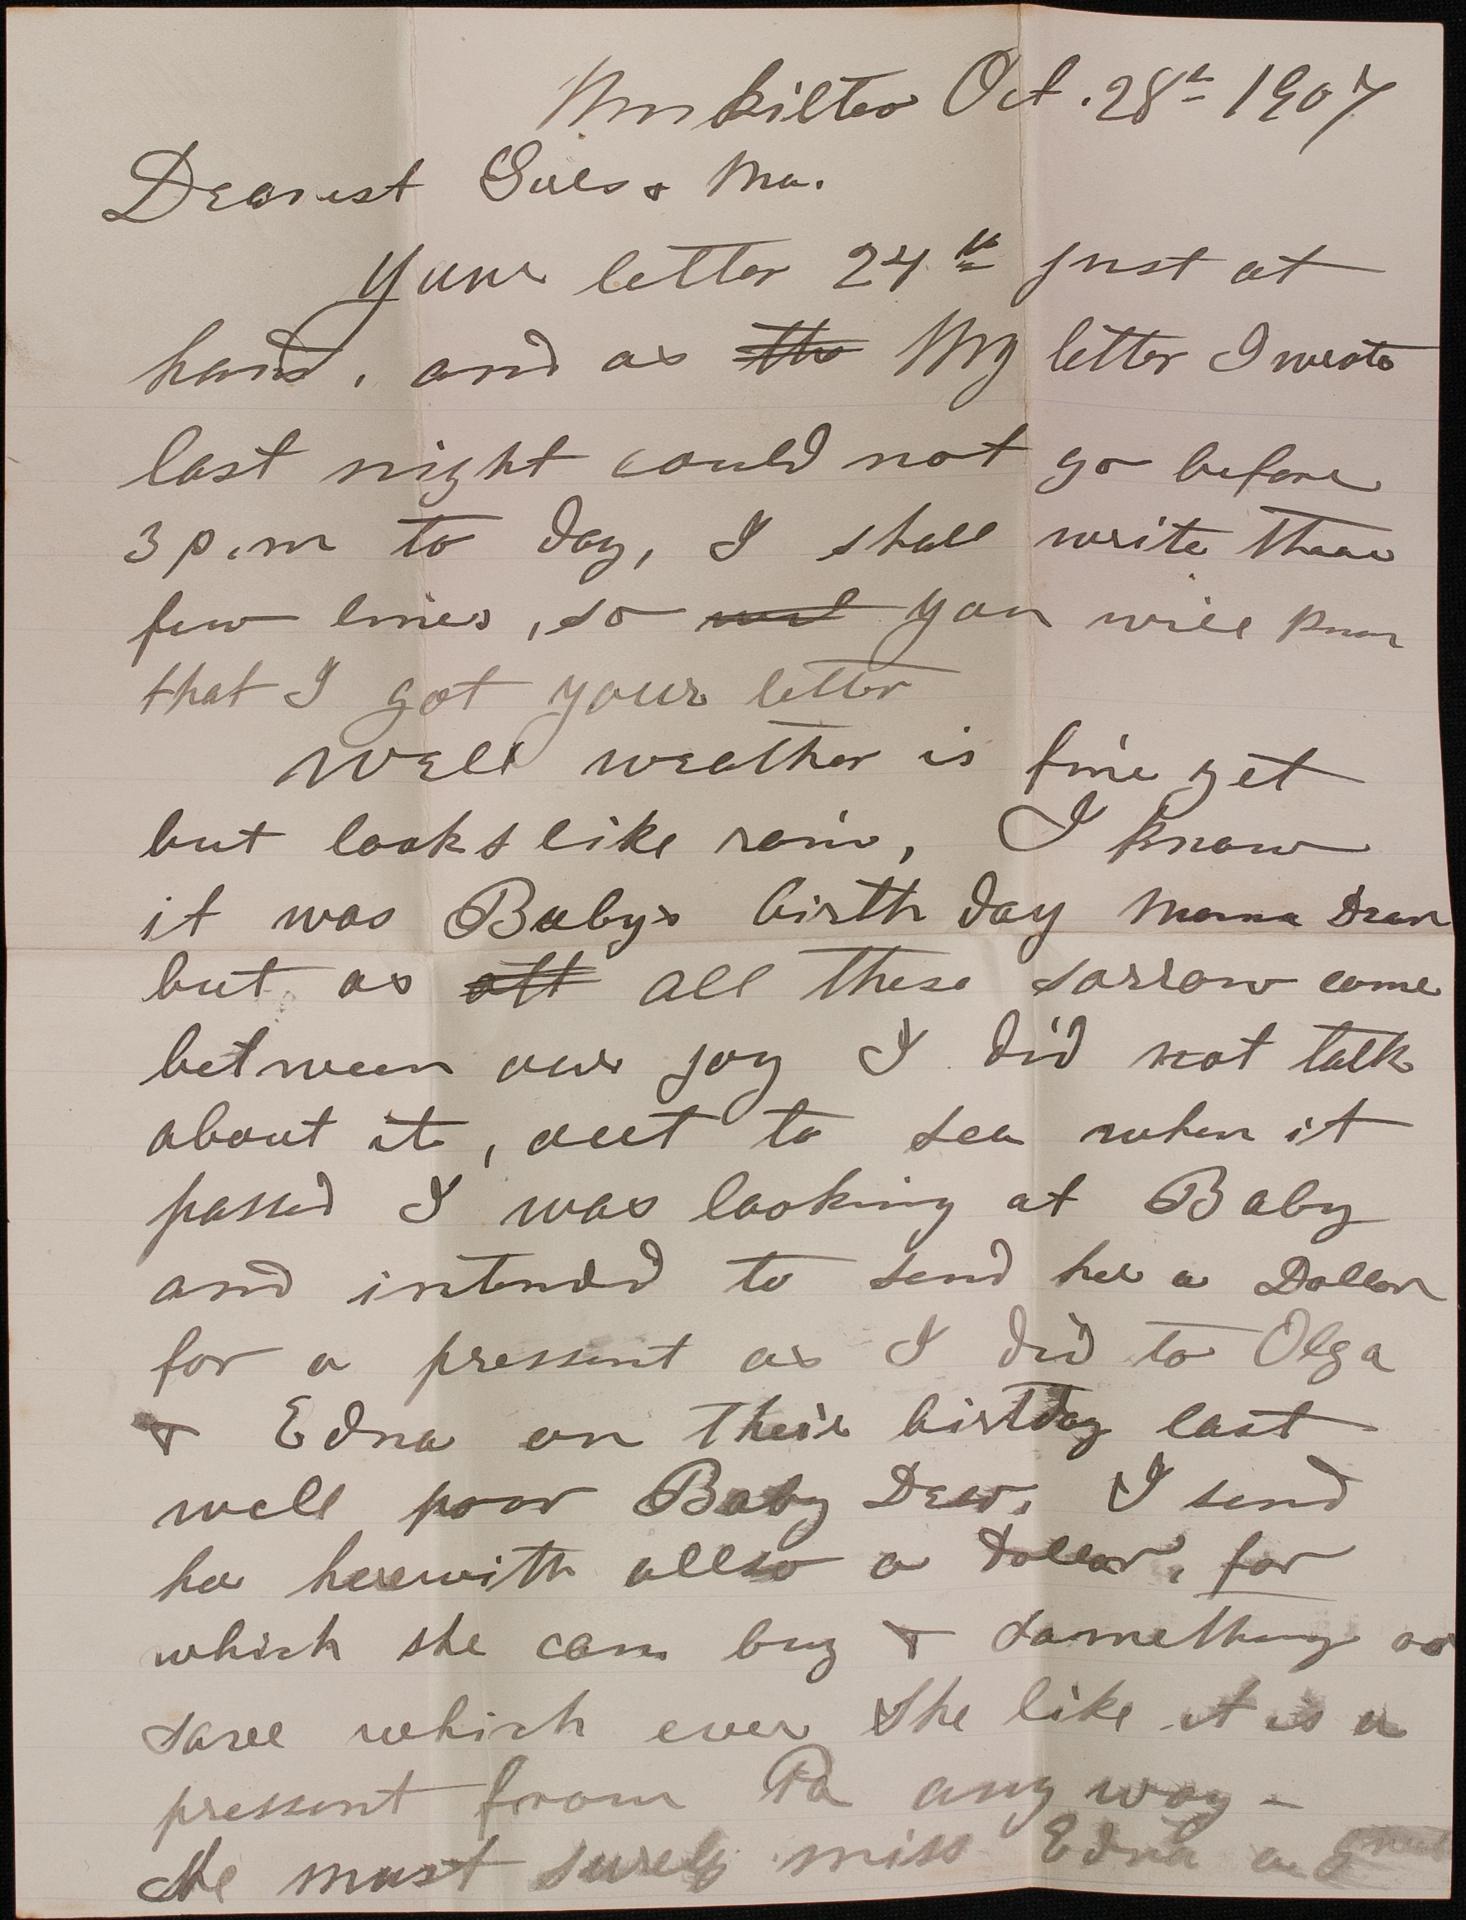 Mukilteo Oct. 28th 1907
Dearest Girls & Ma.
Your letter 24th just at
hand, and as the My letter I wrote
last night could not go before
3 p.m to day, I shall write these
few lines, so you will know
that I got your letter
Well weather is fine yet
but looks like rain, I know
it was Babys birth day Mama Dear
but as all these sorrow come
between our joy I did not talk
about it, but to see when it
passed I was looking at Baby
and intended to send her a Dollar
for a pressent as I did to Olga
& Edna on their birtday last
well poor Baby Dear. I send
her herewith allso a dollar, for
which she can buy & something or
save which ever She like it is a
pressent from Pa any way -
She must surely miss Edna